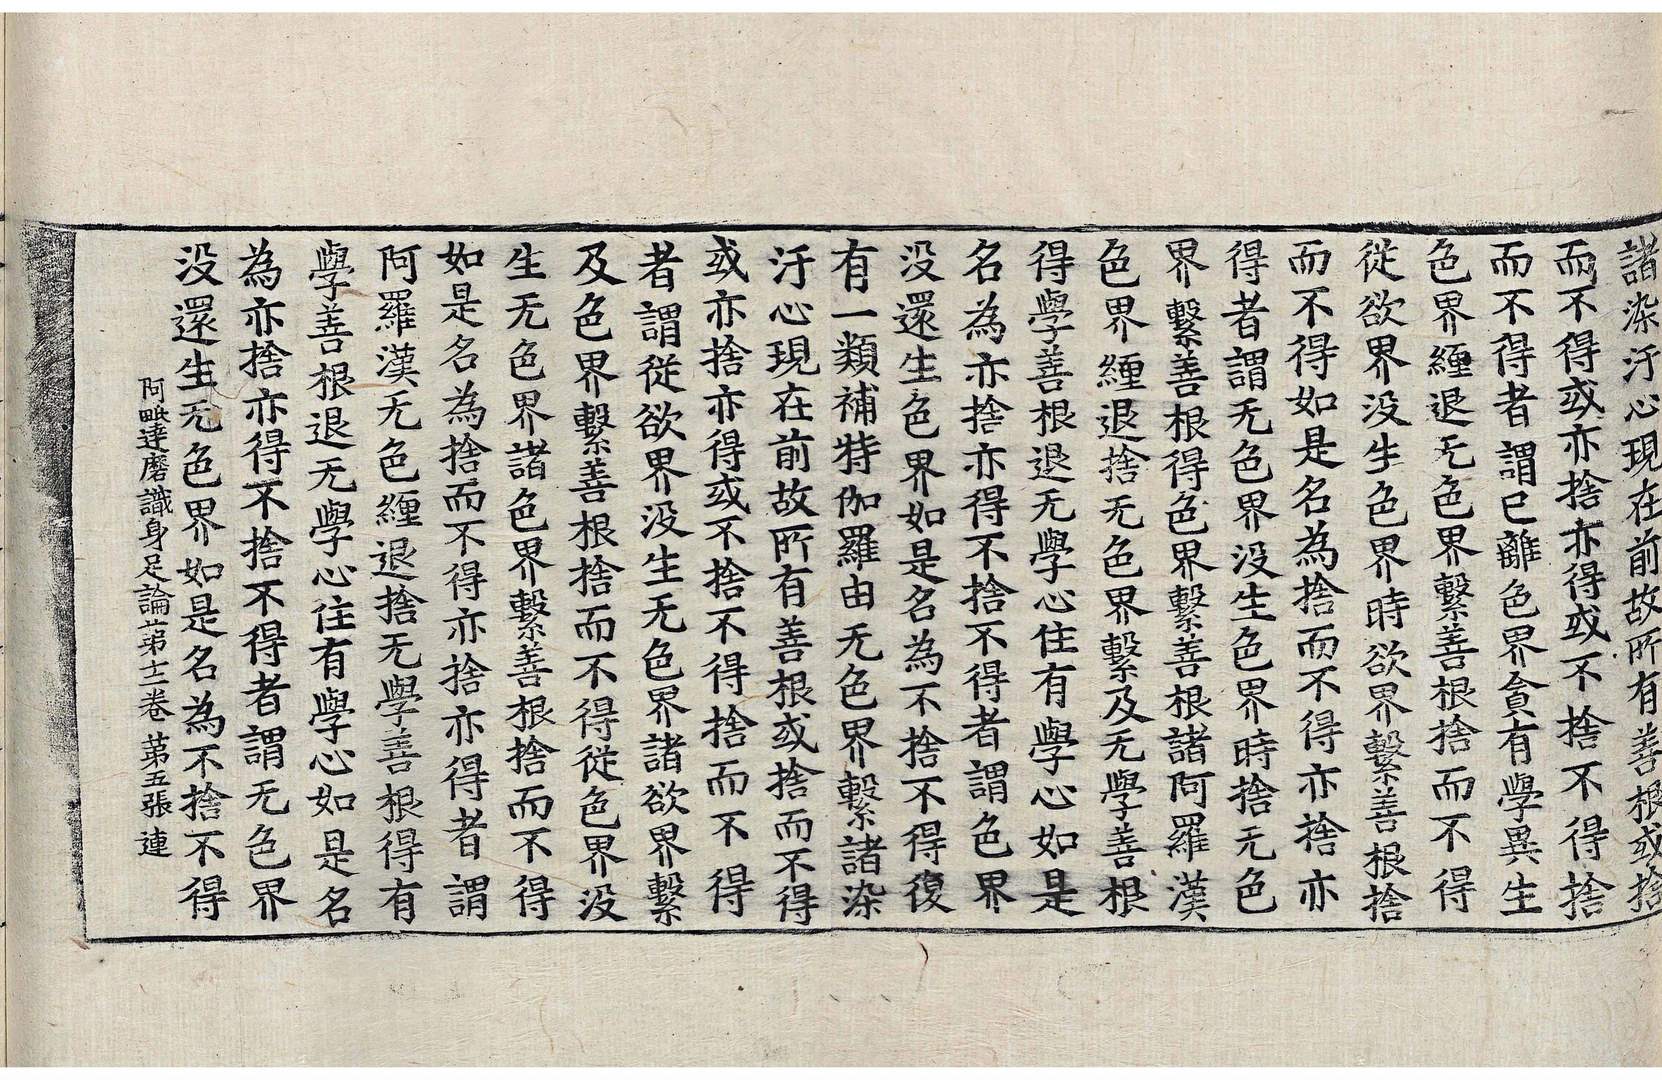 諸染汙心現在前故所有善根或捨
而不得或亦捨亦得或不捨不得捨
而不得者謂已離色界貪有學異生
色界纏退无色界繫善根捨而不得
從欲界没生色界時欲界繫善根捨
而不得如是名為捨而不得亦捨亦
得者謂无色界没生色界時捨无色
界繫善根得色界繫善根諸阿羅漢
色界纏退捨无色界繫及无學善根
得學善根退无學心住有學心如是
名為亦捨亦得不捨不得者謂色界
没還生色界如是名為不捨不得復
有一類補特伽羅由无色界繫諸染
汙心現在前故所有善根或捨而不得
或亦捨亦得或不捨不得捨而不得
者謂從欲界没生无色界諸欲界繫
及色界繫善根捨而不得從色界没
生无色界諸色界繫善根捨而不得
如是名為捨而不得亦捨亦得者謂
阿羅漢无色纏退捨无學善根得有
學善根退无學心住有學心如是名
為亦捨亦得不捨不得者謂无色界
没還生无色界如是名為不捨不得
阿毗達磨識身足論第十二卷 第五張 連